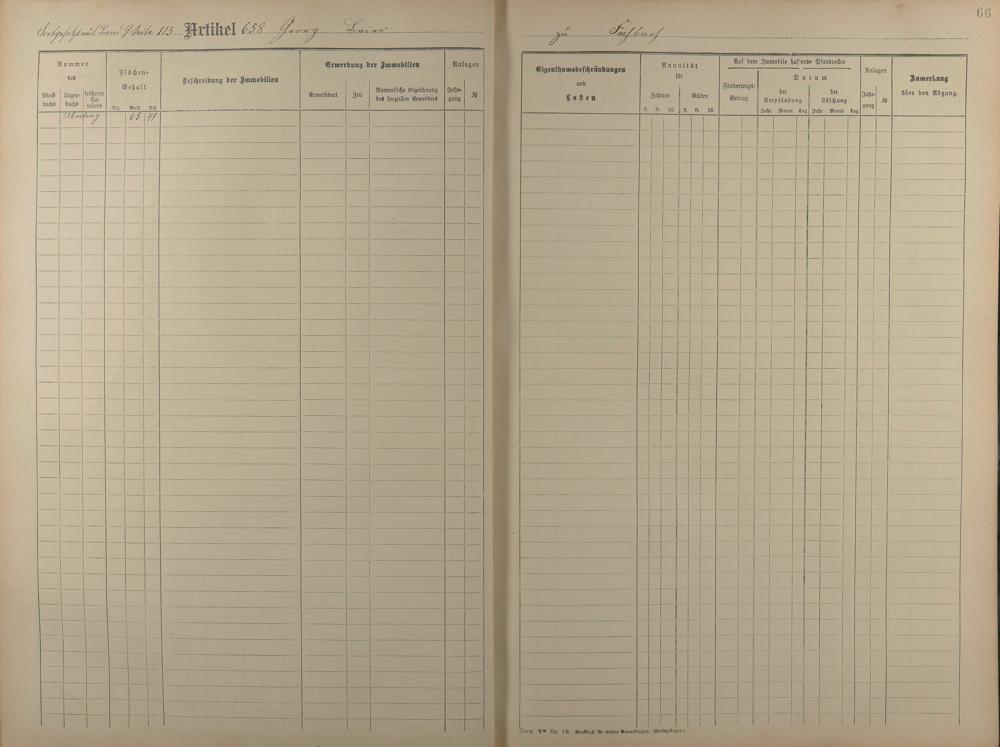 Fortgesetzt aus Band 9 Seite 113 Artikel 658 Georg Baier
zu Fürbach
66
Nummer
des
Stock-
buchs
Lager-
buchs
früheren
Ca-
tasters
Flächen-
Gehalt
Mg. Rth. Sch.
Beschreibung der Immobilien
Erwerbung der Immobilien
Erwerbsart
Zeit
Namentliche Bezeichnung
des speziellen Erwerbers
Anlagen
Jahr-
gang
№
Übertrag 65 49
Eigenthumsbeschränkungen
und
Lasten
Annuität
für
Zehnten
Gülten
Auf dem Immobile haftende Pfandrechte
Forderungs-
Betrag
Datum
der
Verpfändung
Jahr Monat Tag
der
Löschung
Jahr Monat Tag
Anlagen
Jahr-
gang
№
Anmerkung
über den Abgang.